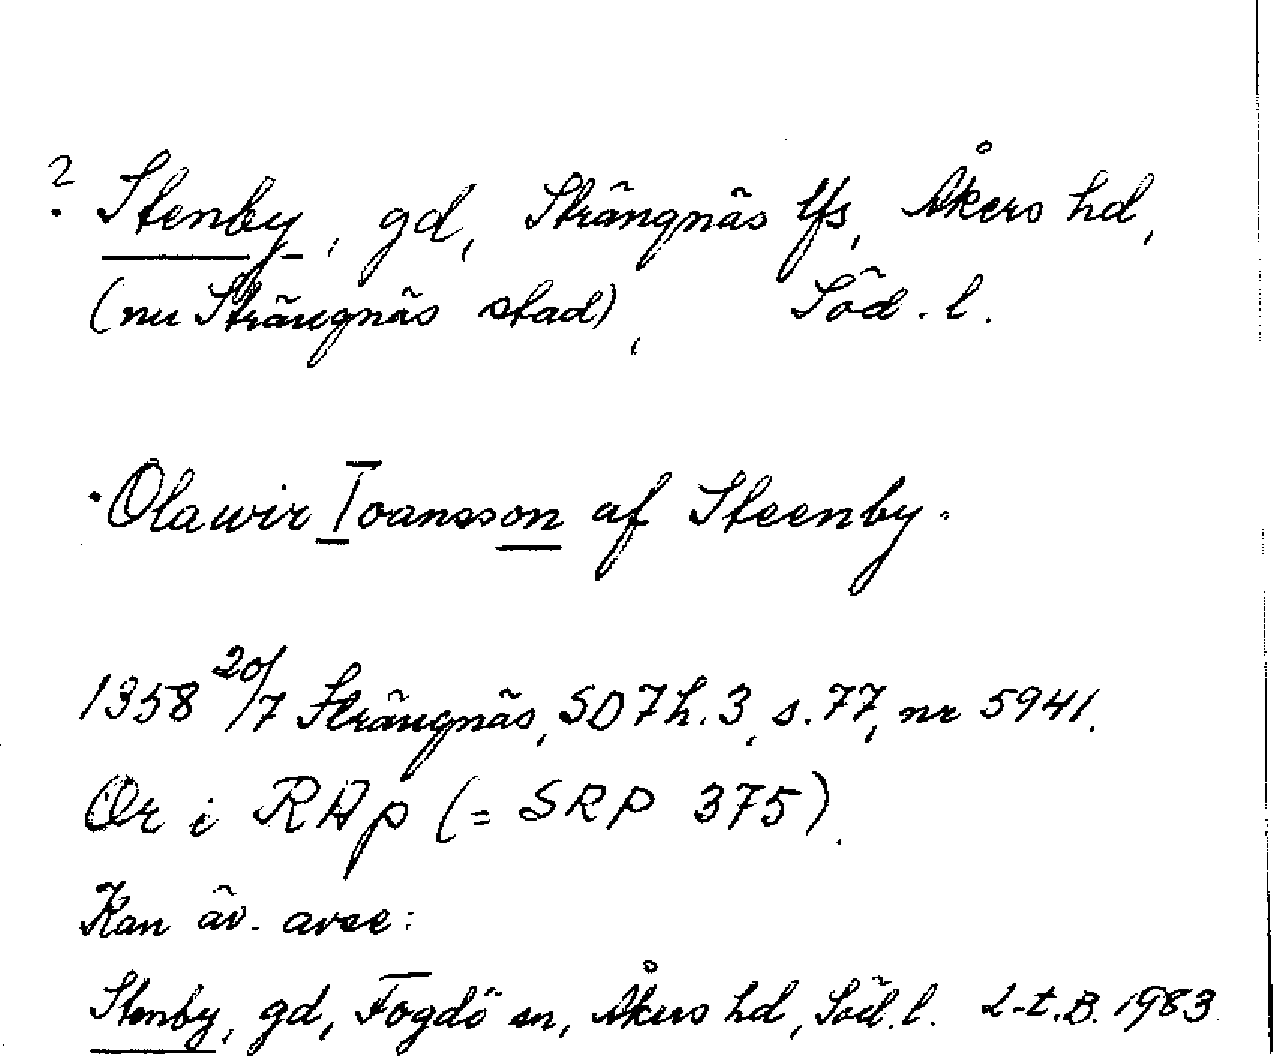 ? Stenby, gd, Strängnäs lfs, Åkers hd,
(nu Strängnäs stad), Söd. l.
·Olawir Ioansson af Steenby·
1358 20/7 Strängnäs, SD 7 h. 3, s. 77, nr 5941.
Or i RAp (= SRP 375).
Kan äv. avse:
Stenby, gd, Fogdö sn, Åkers hd, Söd. l. L-t. B. 1983